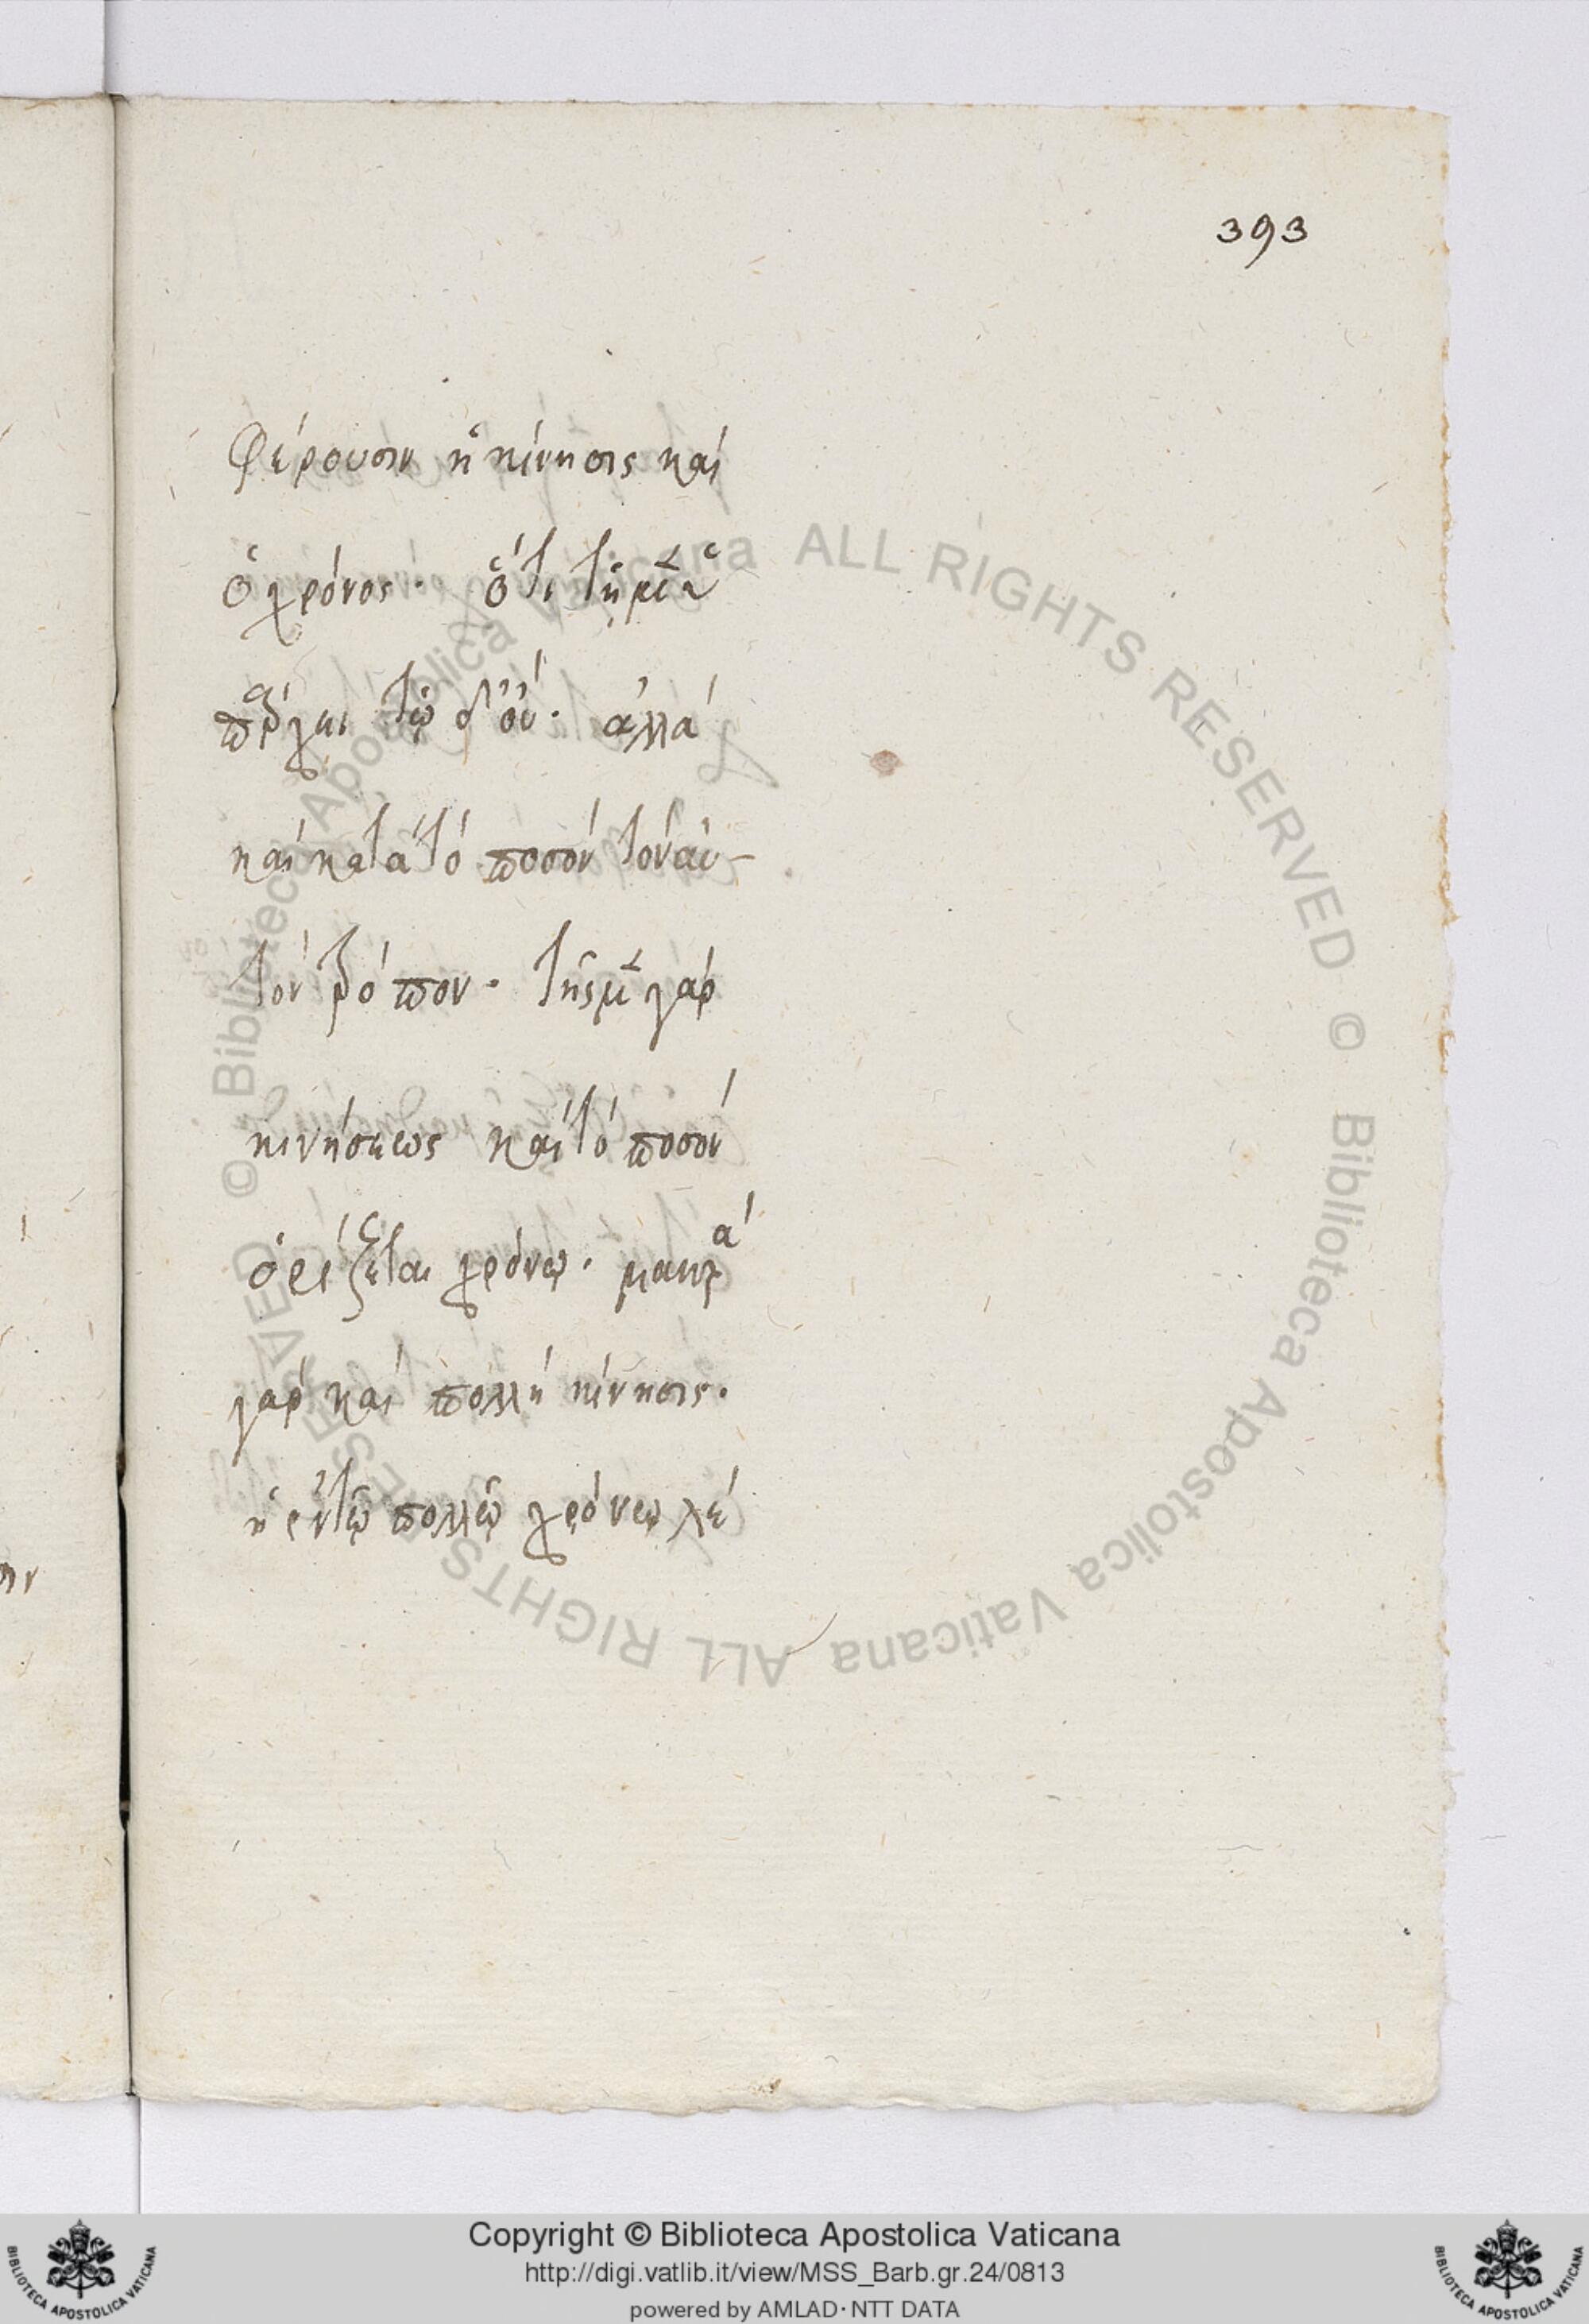 393
φέρουσιν ἡ κίνησις καὶ
ὁ χρόνος· ὅτι τῇ μὲν
τῷ δ' οὔ· ἀλλὰ
καὶ κατὰ τὸ ποσὸν τὸν αὐ-
τὸν τρόπον· τῆς μὲν γὰρ
κινήσεως καὶ τὸ ποσὸν
ὁρίζεται χρόνῳ· μακρὰ
γὰρ καὶ πολλὴ κίνησις·
ἡ ἐν τῷ πολλῷ χρόνῳ λέ
© Biblioteca Apostolica Vaticana ALL RIGHTS RESERVED © Biblioteca Apostolica Vaticana ALL RIGHTS RESERVED
Copyright © Biblioteca Apostolica Vaticana
http://digi.vatlib.it/view/MSS_Barb.gr.24/0813
powered by AMLAD·NTT DATA
BIBLIOTECA APOSTOLICA VATICANA
BIBLIOTECA APOSTOLICA VATICANA